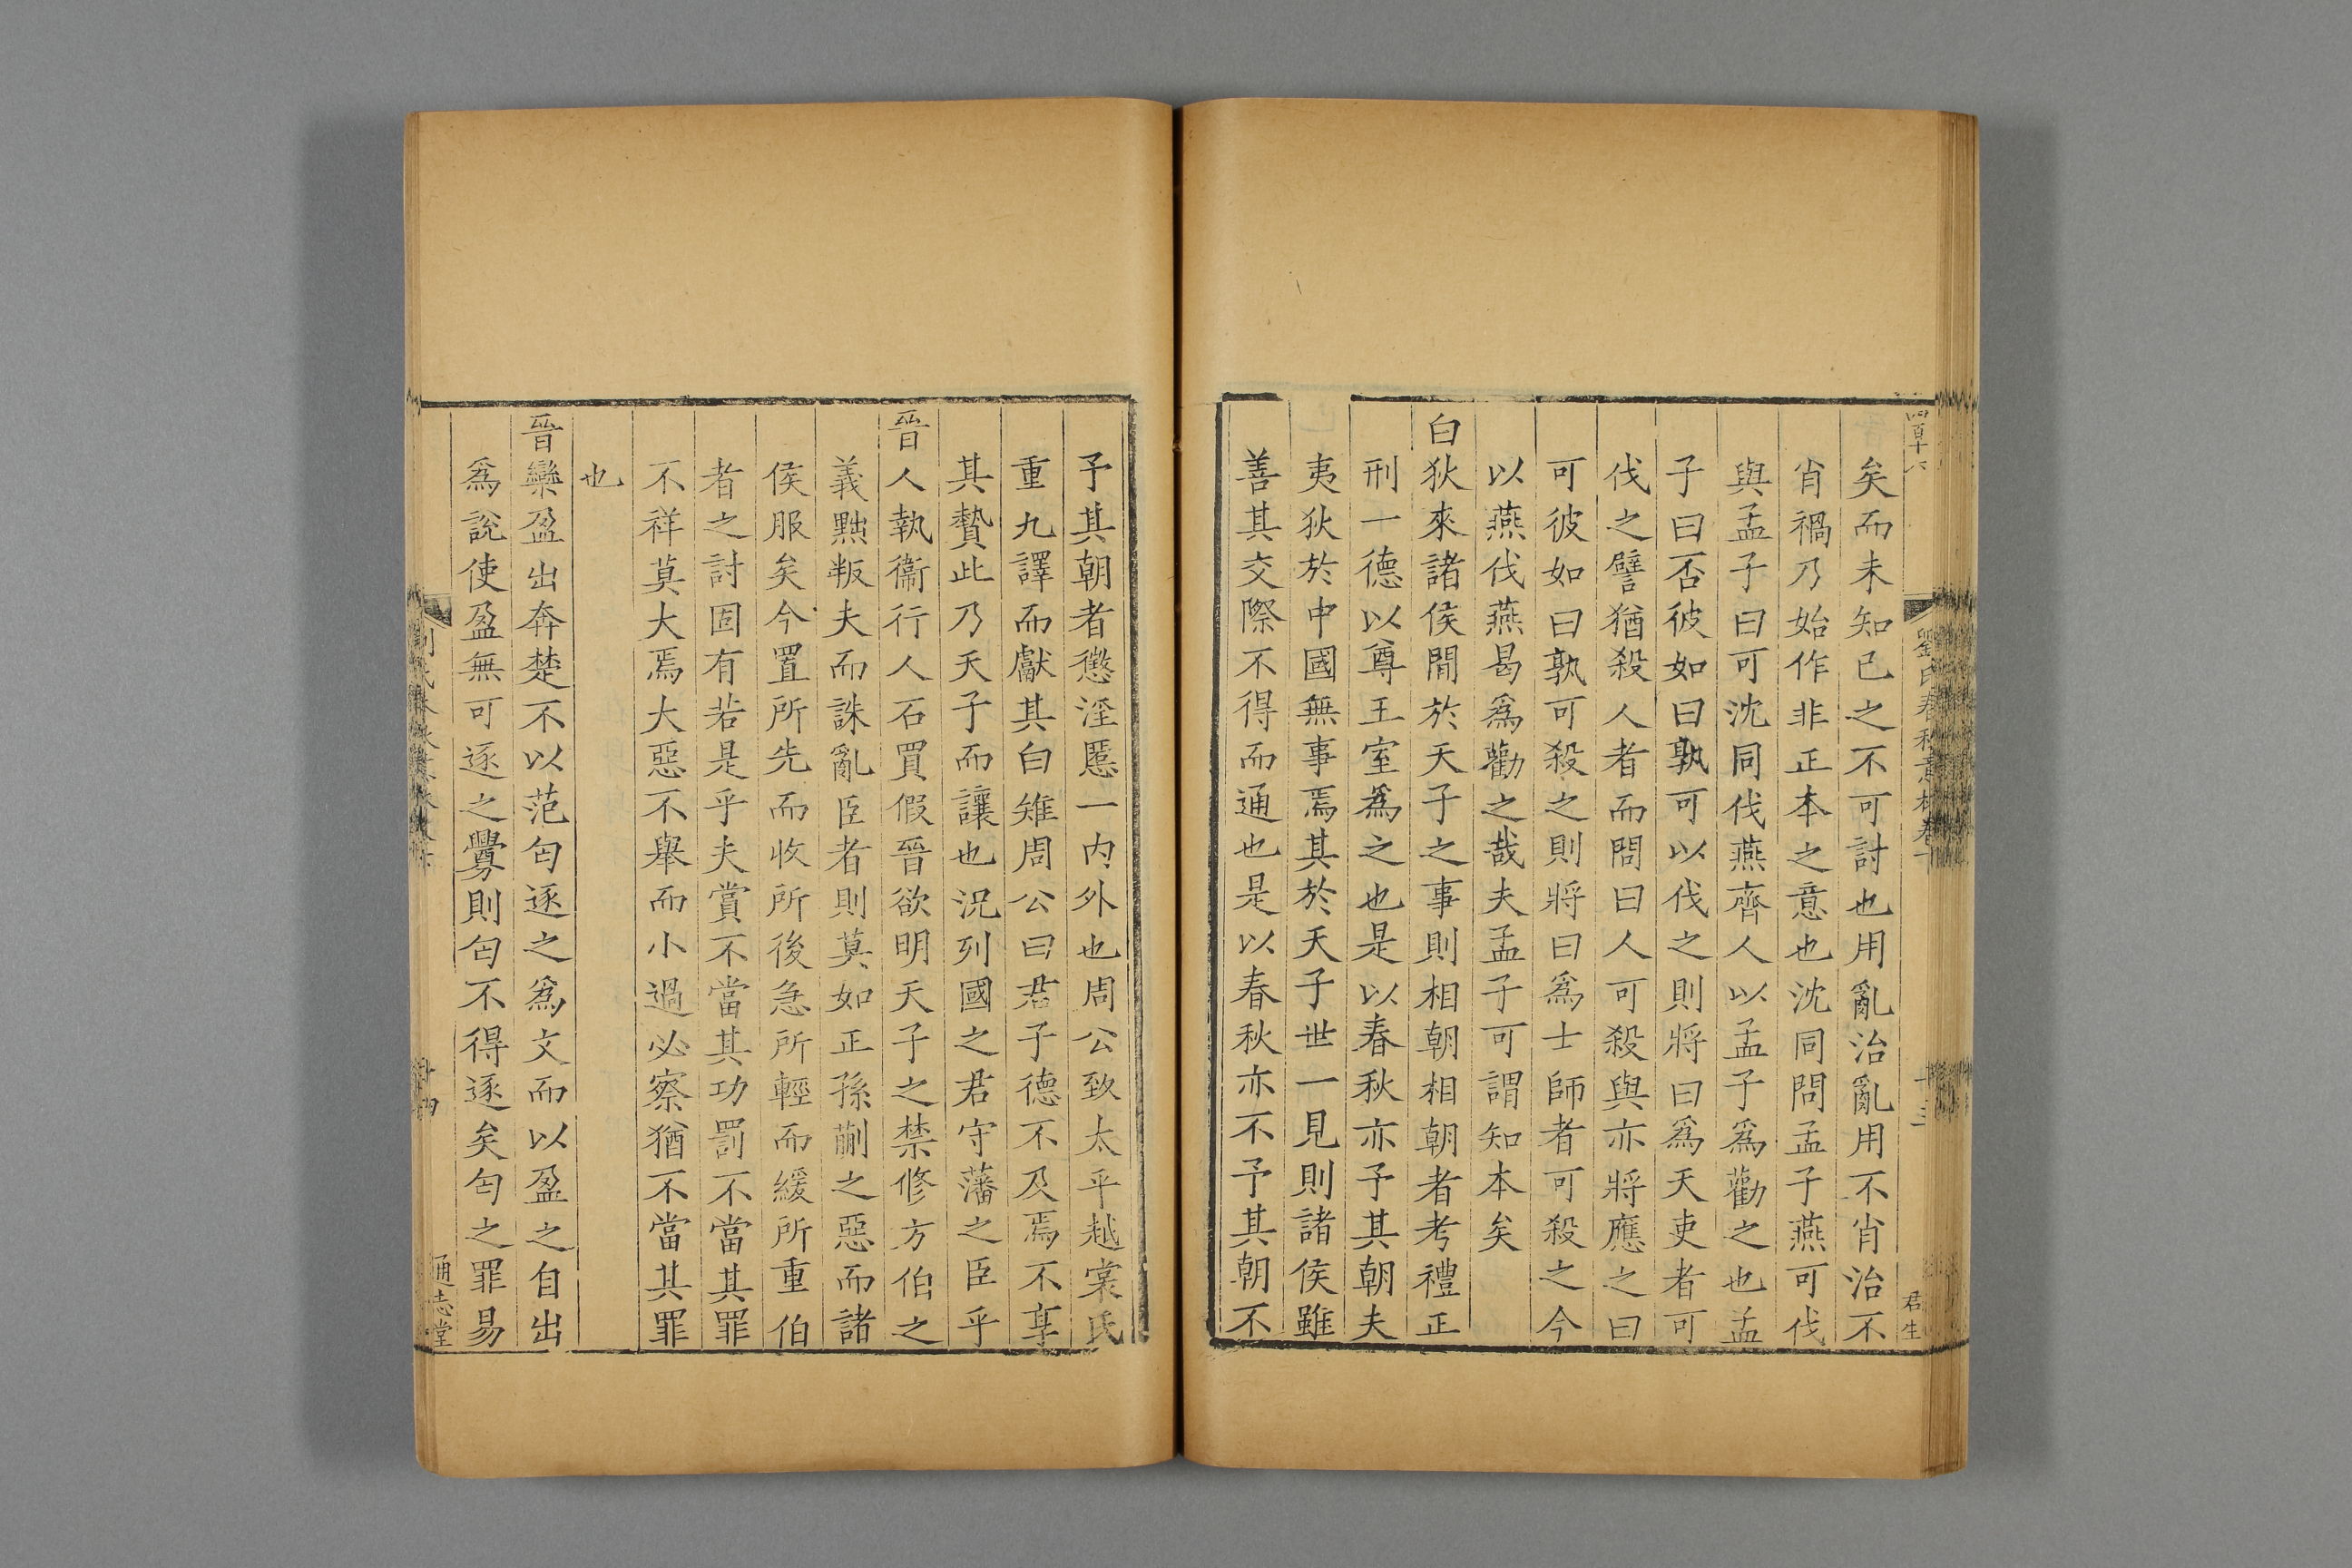 矣而未知已之不可討也用亂治亂用不肖治不
肖禍乃始作非正本之意也沈同問孟子燕可伐
與孟子曰可沈同伐燕齊人以孟子爲勸之也孟
子曰否彼如曰孰可以伐之則將曰爲天吏者可
伐之譬猶殺人者而問曰人可殺與亦將應之曰
可彼如曰孰可殺之則將曰爲士師者可殺之今
以燕伐燕曷爲勸之哉夫孟子可謂知本矣
白狄來諸侯閒於天子之事則相朝相朝者考禮正
刑一德以尊王室爲之也是以春秋亦予其朝夫
夷狄於中國無事焉其於天子世一見則諸侯雖
善其交際不得而通也是以春秋亦不予其朝不
予其朝者懲淫慝一內外也周公致太平越裳氏
重九譯而獻其白雉周公曰君子德不及焉不享
其贄此乃天子而讓也況列國之君守藩之臣乎
晉人執衞行人石買假晉欲明天子之禁修方伯之
義黜叛夫而誅亂臣者則莫如正孫蒯之惡而諸
侯服矣今置所先而收所後急所輕而緩所重伯
者之討固有若是乎夫賞不當其功罰不當其罪
不祥莫大焉大惡不舉而小過必察猶不當其罪
也
晉欒盈出奔楚不以范匄逐之爲文而以盈之自出
爲說使盈無可逐之釁則匄不得逐矣匄之罪易
通志堂
君生